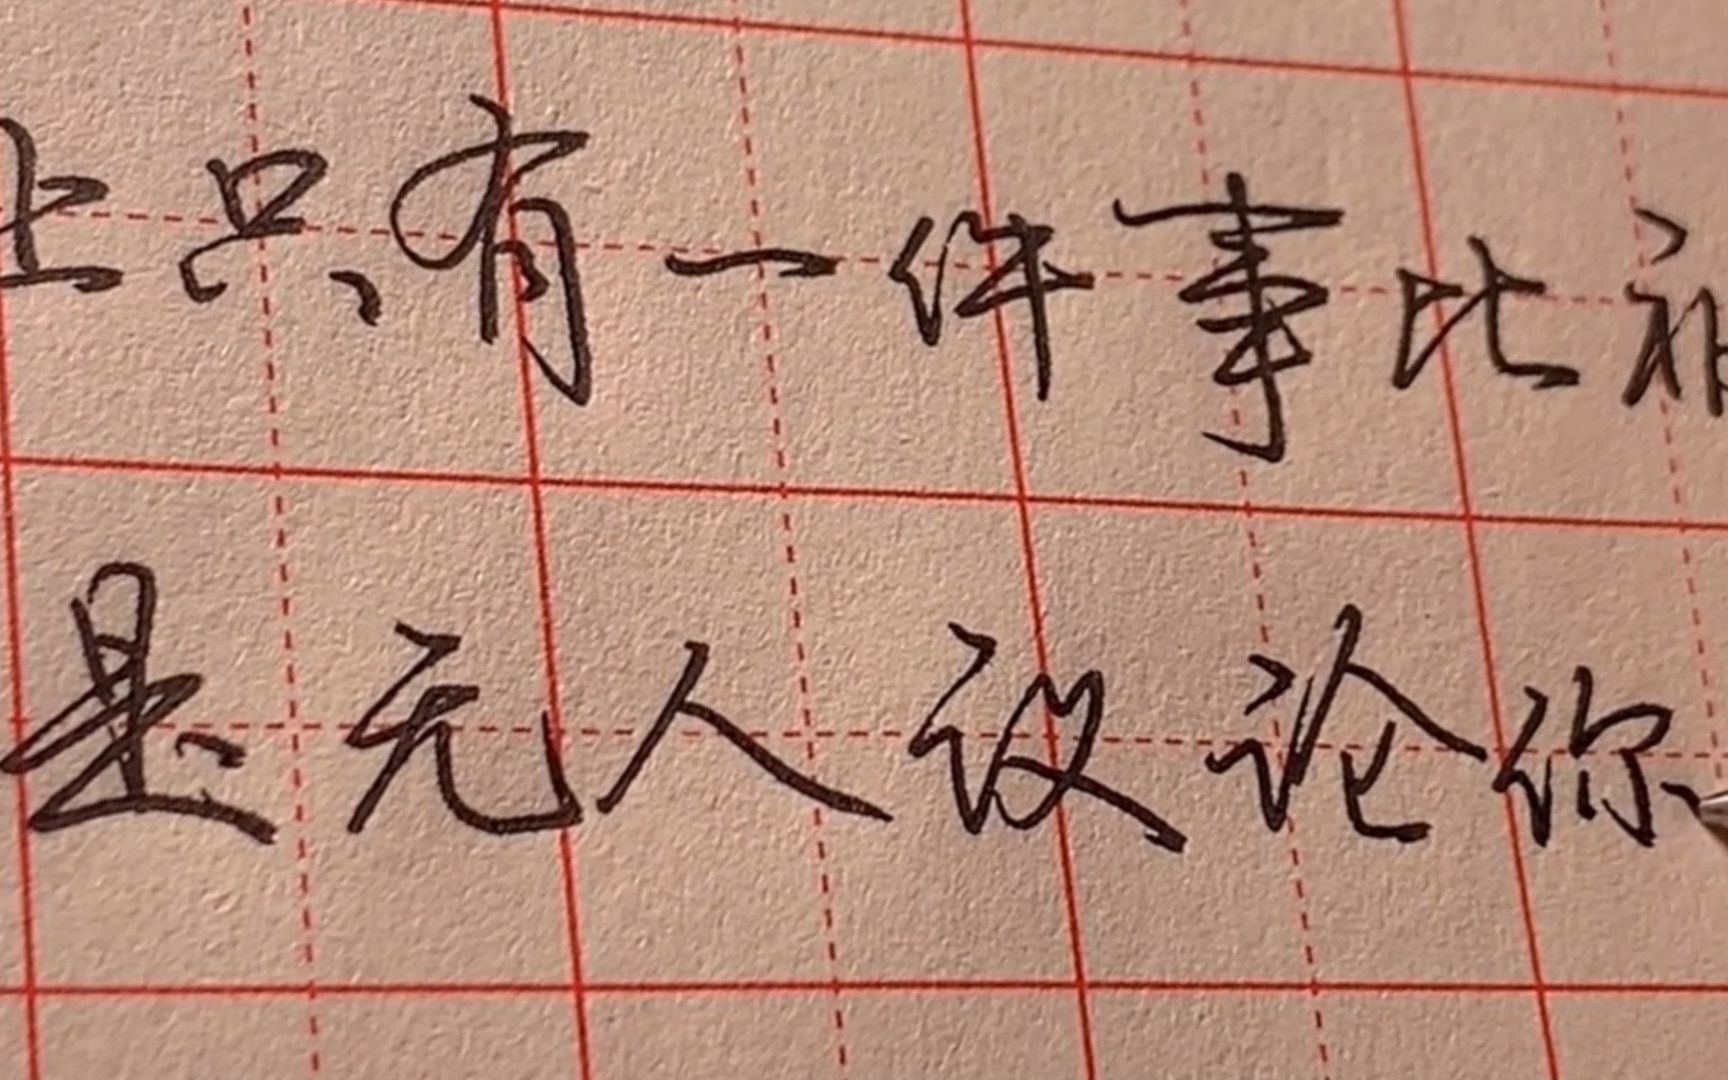 上只有一件事比
是无人议论你